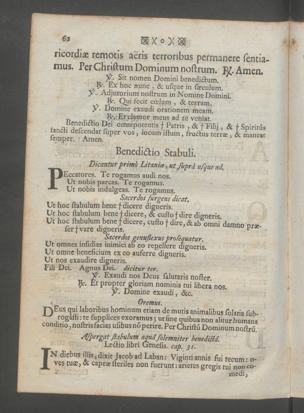 62
ricordiæ remotis aëris terroribus permanere sentia-
mus. Per Christum Dominum nostrum. ℟. Amen.
℣. Sit nomen Domini benedictum.
℟. Ex hoc nunc, & usque in sæculum.
℣. Adjutorium nostrum in Nomine Domini.
℟. Qui fecit cœlum, & terram.
℣. Domine exaudi orationem meam.
℟. Et clamor meus ad te veniat.
Benedictio Dei omnipotentis † Patris, & † Filij, & † Spiritûs
sancti descendat super vos, locum istum, fructus terræ, & maneat
semper. Amen.
Benedictio Stabuli.
Dicantur primò Litaniæ, ut suprà usque ad,
PEccatores. Te rogamus audi nos.
Ut nobis parcas. Te rogamus.
Ut nobis indulgeas. Te rogamus.
Sacerdos surgens dicat.
Ut hoc stabulum bene † dicere digneris.
Ut hoc stabulum bene † dicere, & custo † dire digneris.
Ut hoc stabulum bene † dicere, custo † dire, & ab omni damno præ-
ser † vare digneris.
Sacerdos genuflexus prosequatur.
Ut omnes insidias inimici ab eo repellere digneris.
Ut omne beneficium ex eo auferre digneris.
Ut nos exaudire digneris.
Fili Dei. Agnus Dei. dicitur ter.
℣. Exaudi nos Deus salutaris noster.
℟. Et propter gloriam nominis tui libera nos.
℣. Domine exaudi, &c.
Oremus.
DEus qui laboribus hominum etiam de mutis animalibus solatia sub-
rogâsti: te supplices exoramus; ut sine quibus non alitur humana
conditio, nostris facias usibus nō perire. Per Christū Dominum nostrū.
Aspergat stabulum aquâ solemniter benedictâ.
Lectio libri Genesis. cap. 31.
IN diebus illis, dixit Jacob ad Laban: Viginti annis fui tecum: o-
ves tuæ, & capræ steriles non fuerunt: arietes gregis tui non co-
medi,